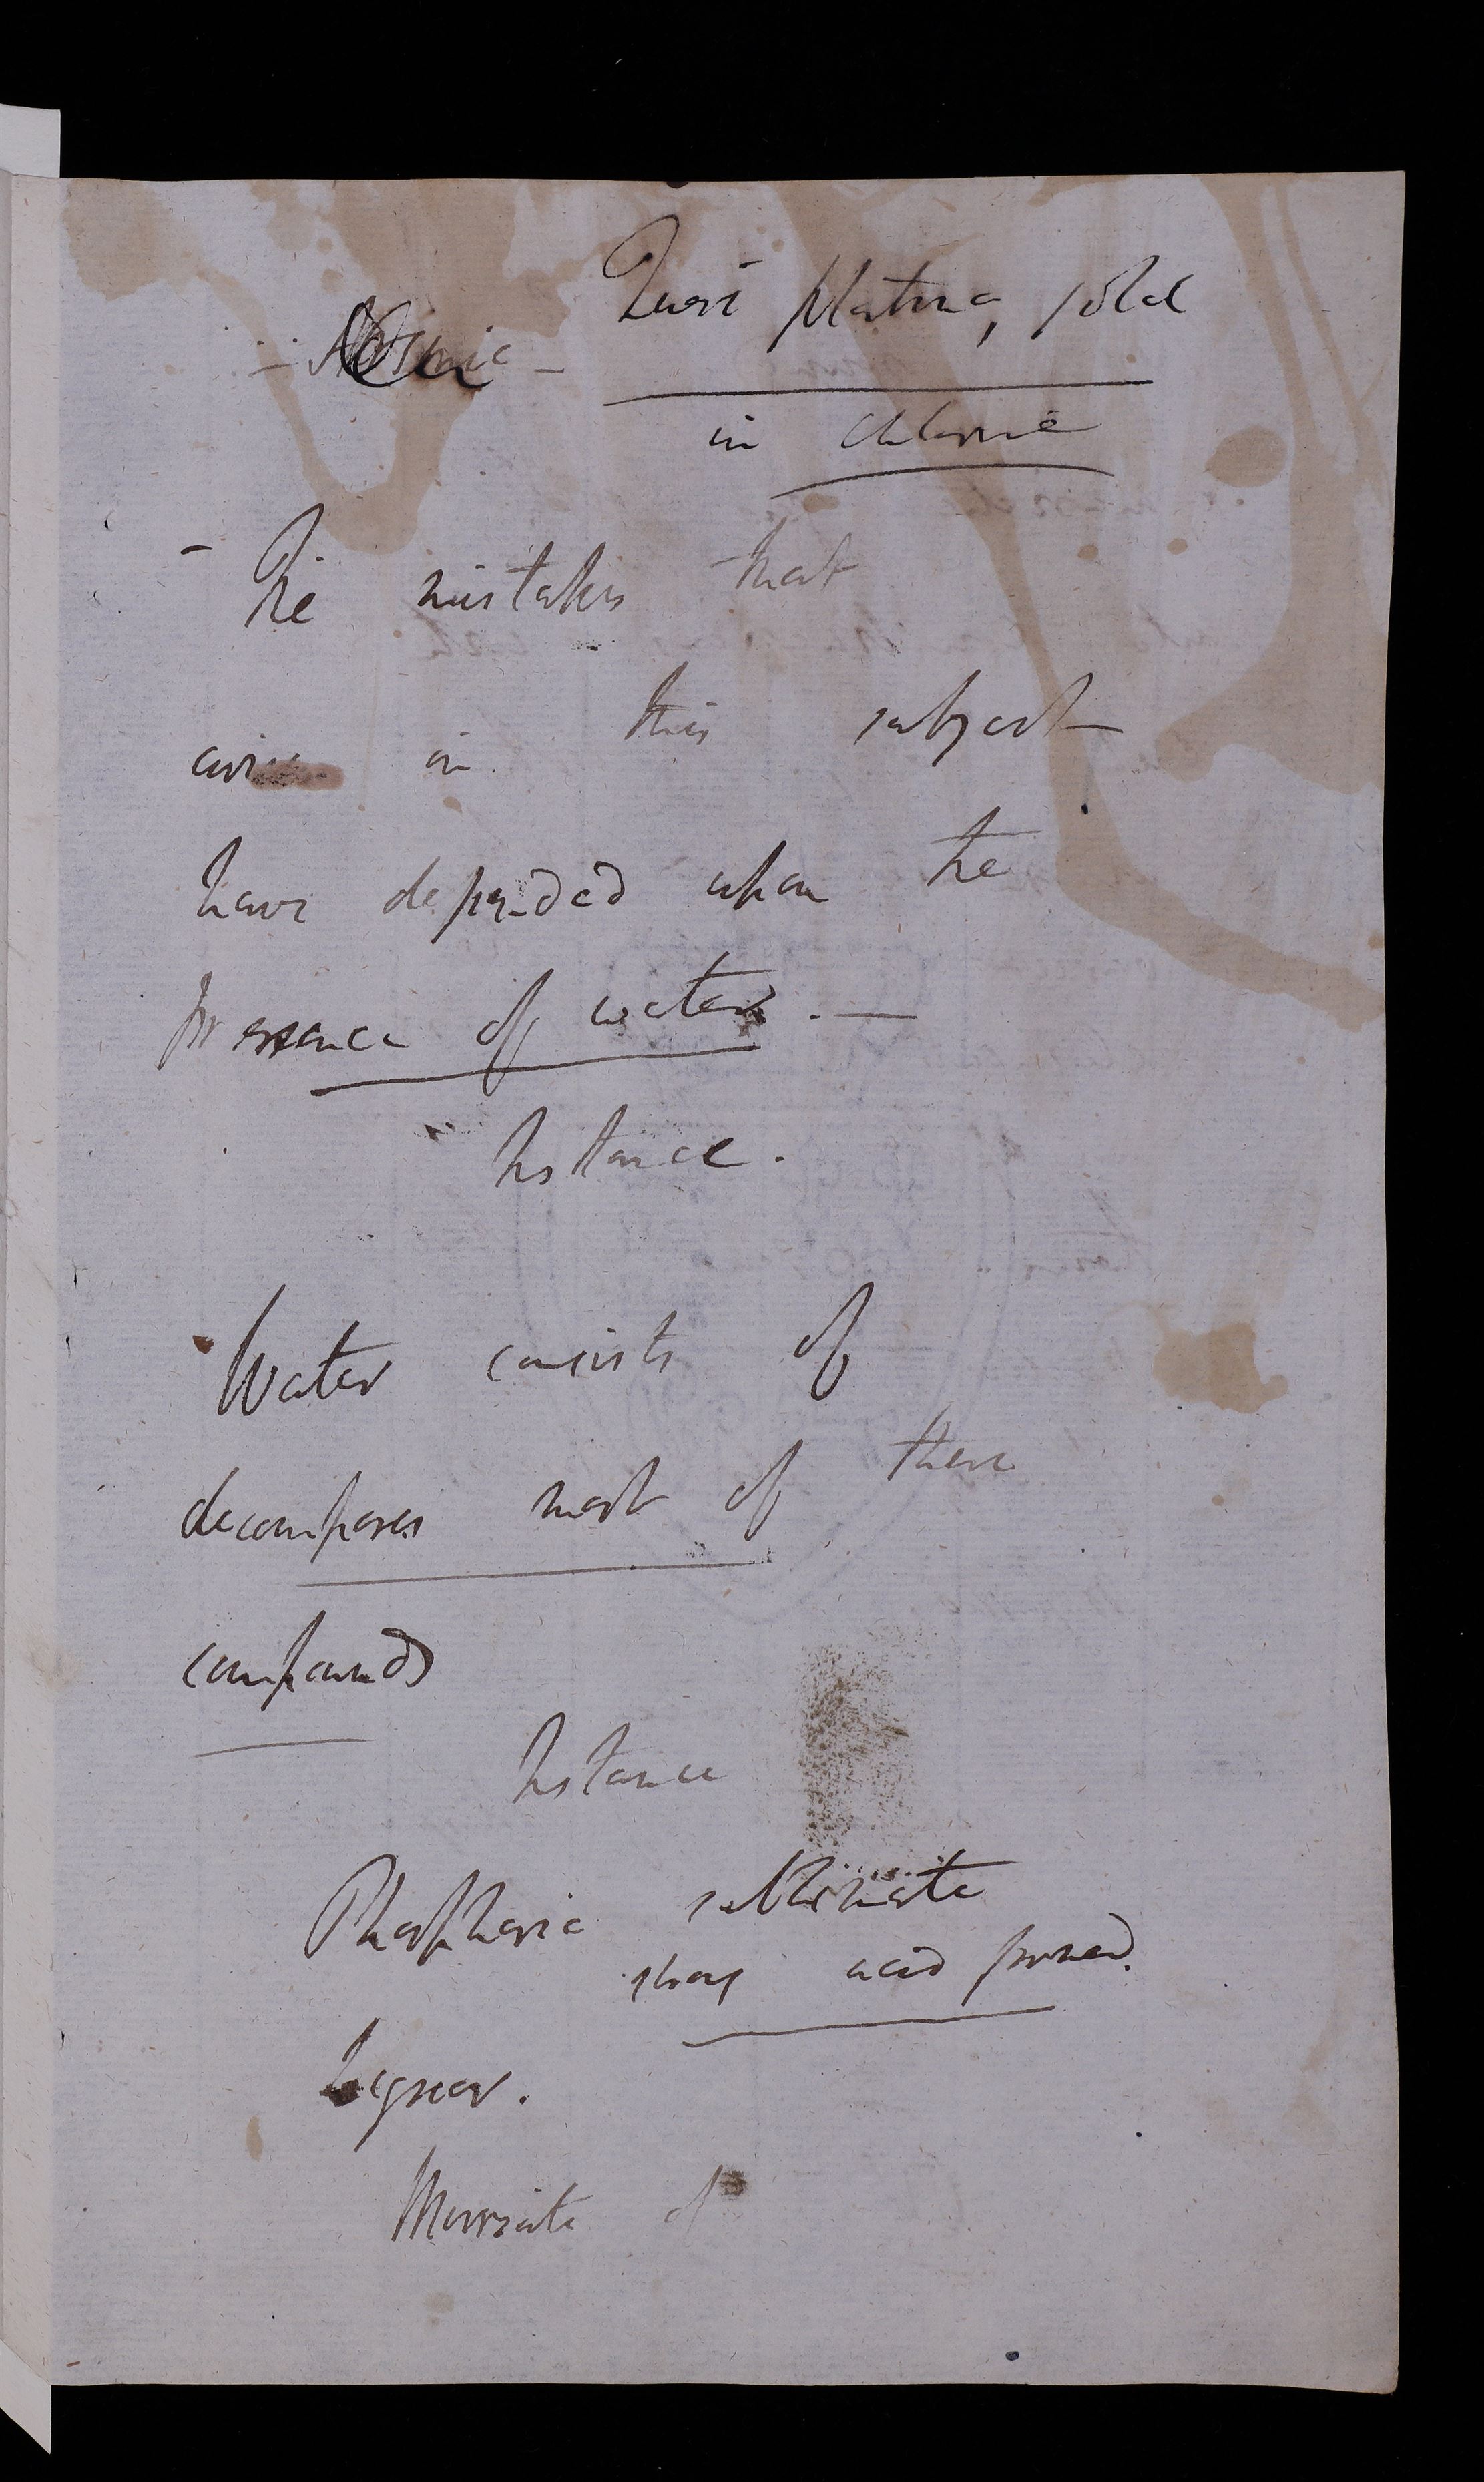 Platina, gold
in chlorine
The mistakes that
in this subject
have depended upon the
presence of water. —
Instance.
Water consists of
decomposes most of these
compounds
Instance
Phosphoric sublimate
strong acid formed.
Liquor.
Muriate of